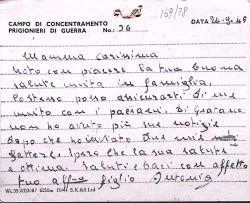 159/78
CAMPO DI CONCENTRAMENTO
PRIGIONIERI DI GUERRA
No.: 36
DATA
Mamma Carissima
Noto con piacere la tua buona
salute unita in famiglia.
posso assicurarti di me
unito con i paesani. Di Gaetano
non ho avuto più sue notizie
dopo che ho
lettere, spero che la sua salute
è ottima. Saluti e baci con affetto
tuo aff figlio Antonio